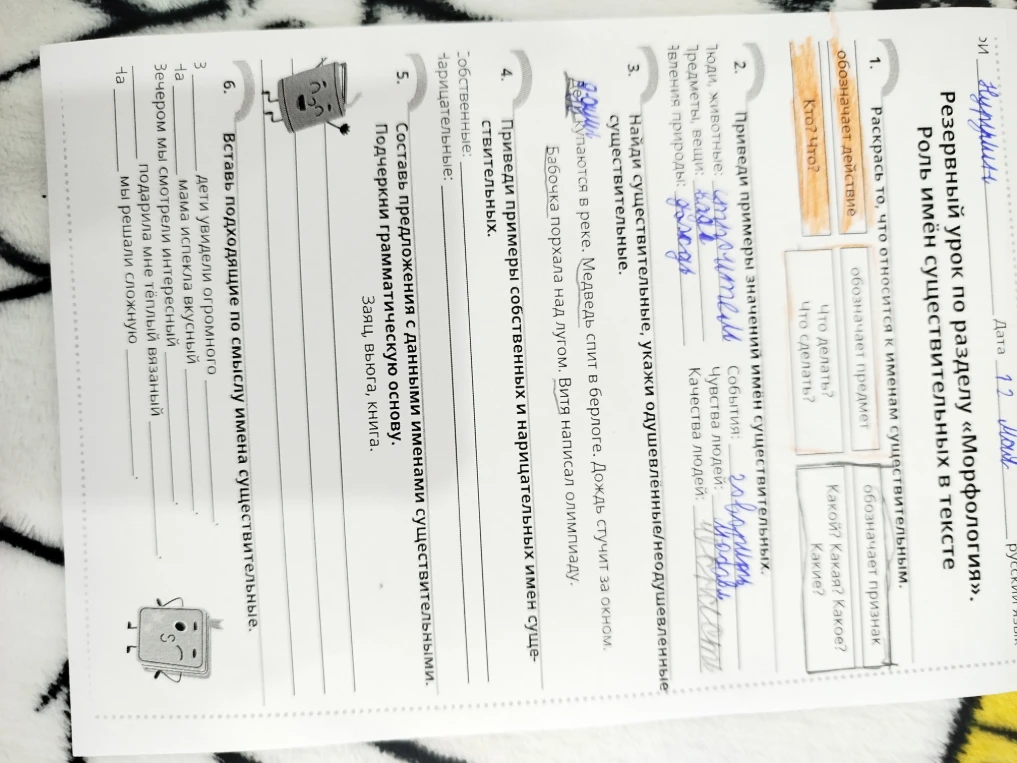 Дата 12 мая
русский язык
Резервный урок по разделу «Морфология».
Роль имён существительных в тексте
1. Раскрась то, что относится к именам существительным.
обозначает действие обозначает предмет обозначает признак
Кто? Что? Что делать? Что сделать? Какой? Какая? Какое? Какие?
2. Приведи примеры значений имён существительных.
Люди, животные: События: говорить
Предметы, вещи: Чувства людей:
Явления природы: дождь Качества людей:
3. Найди существительные, укажи одушевлённые/неодушевлённые
существительные.
купаются в реке. Медведь спит в берлоге. Дождь стучит за окном.
Бабочка порхала над лугом. Витя написал олимпиаду.
4. Приведи примеры собственных и нарицательных имен суще-
ствительных.
Собственные:
Нарицательные:
5. Составь предложения с данными именами существительными.
Подчеркни грамматическую основу.
Заяц, вьюга, книга.
6. Вставь подходящие по смыслу имена существительные.
В дети увидели огромного .
На мама испекла вкусный .
Вечером мы смотрели интересный .
подарила мне тёплый вязаный .
На мы решали сложную .